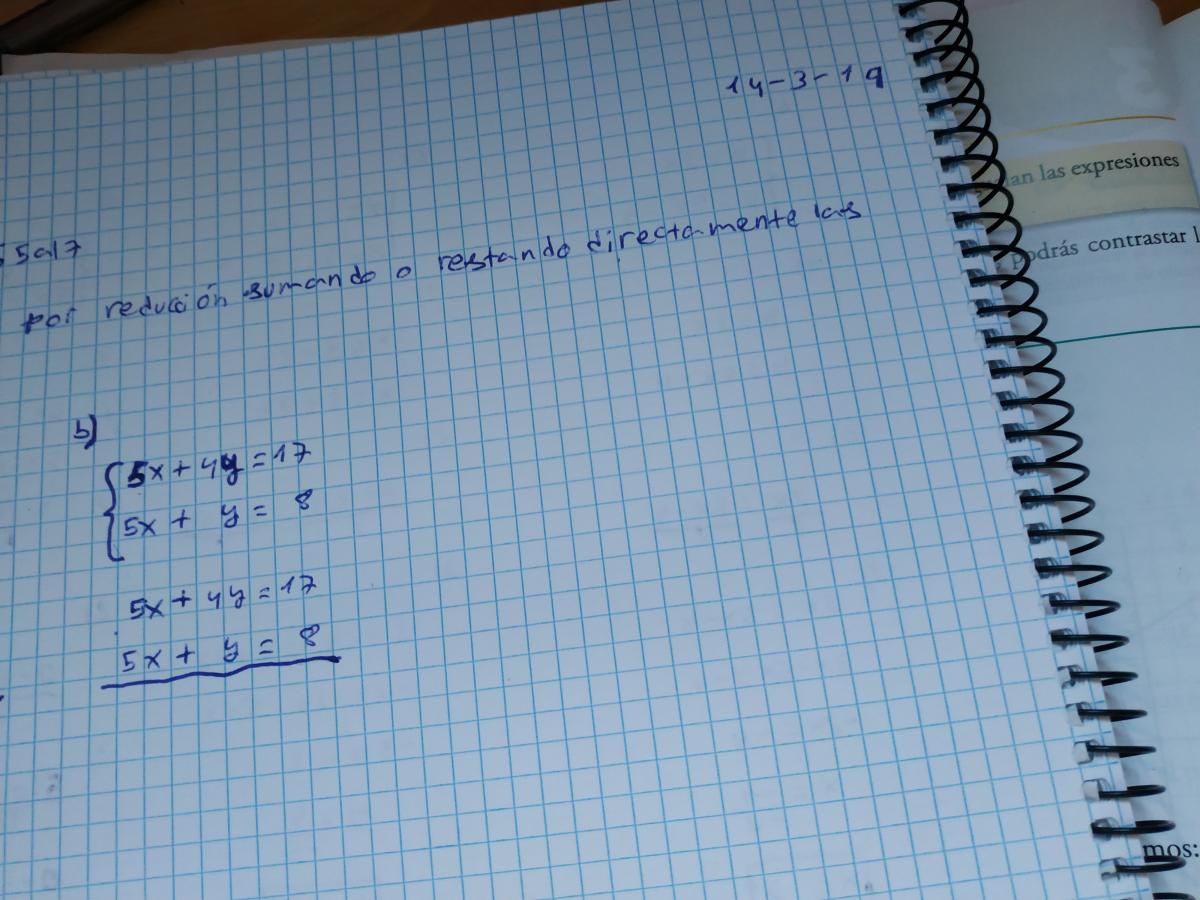 14-3-19
5a17
por reducción sumando o restando directamente las
b)
5x + 4y = 17
5x + y = 8
5x + 4y = 17
5x + y = 8
las expresiones
podrás contrastar
mos: